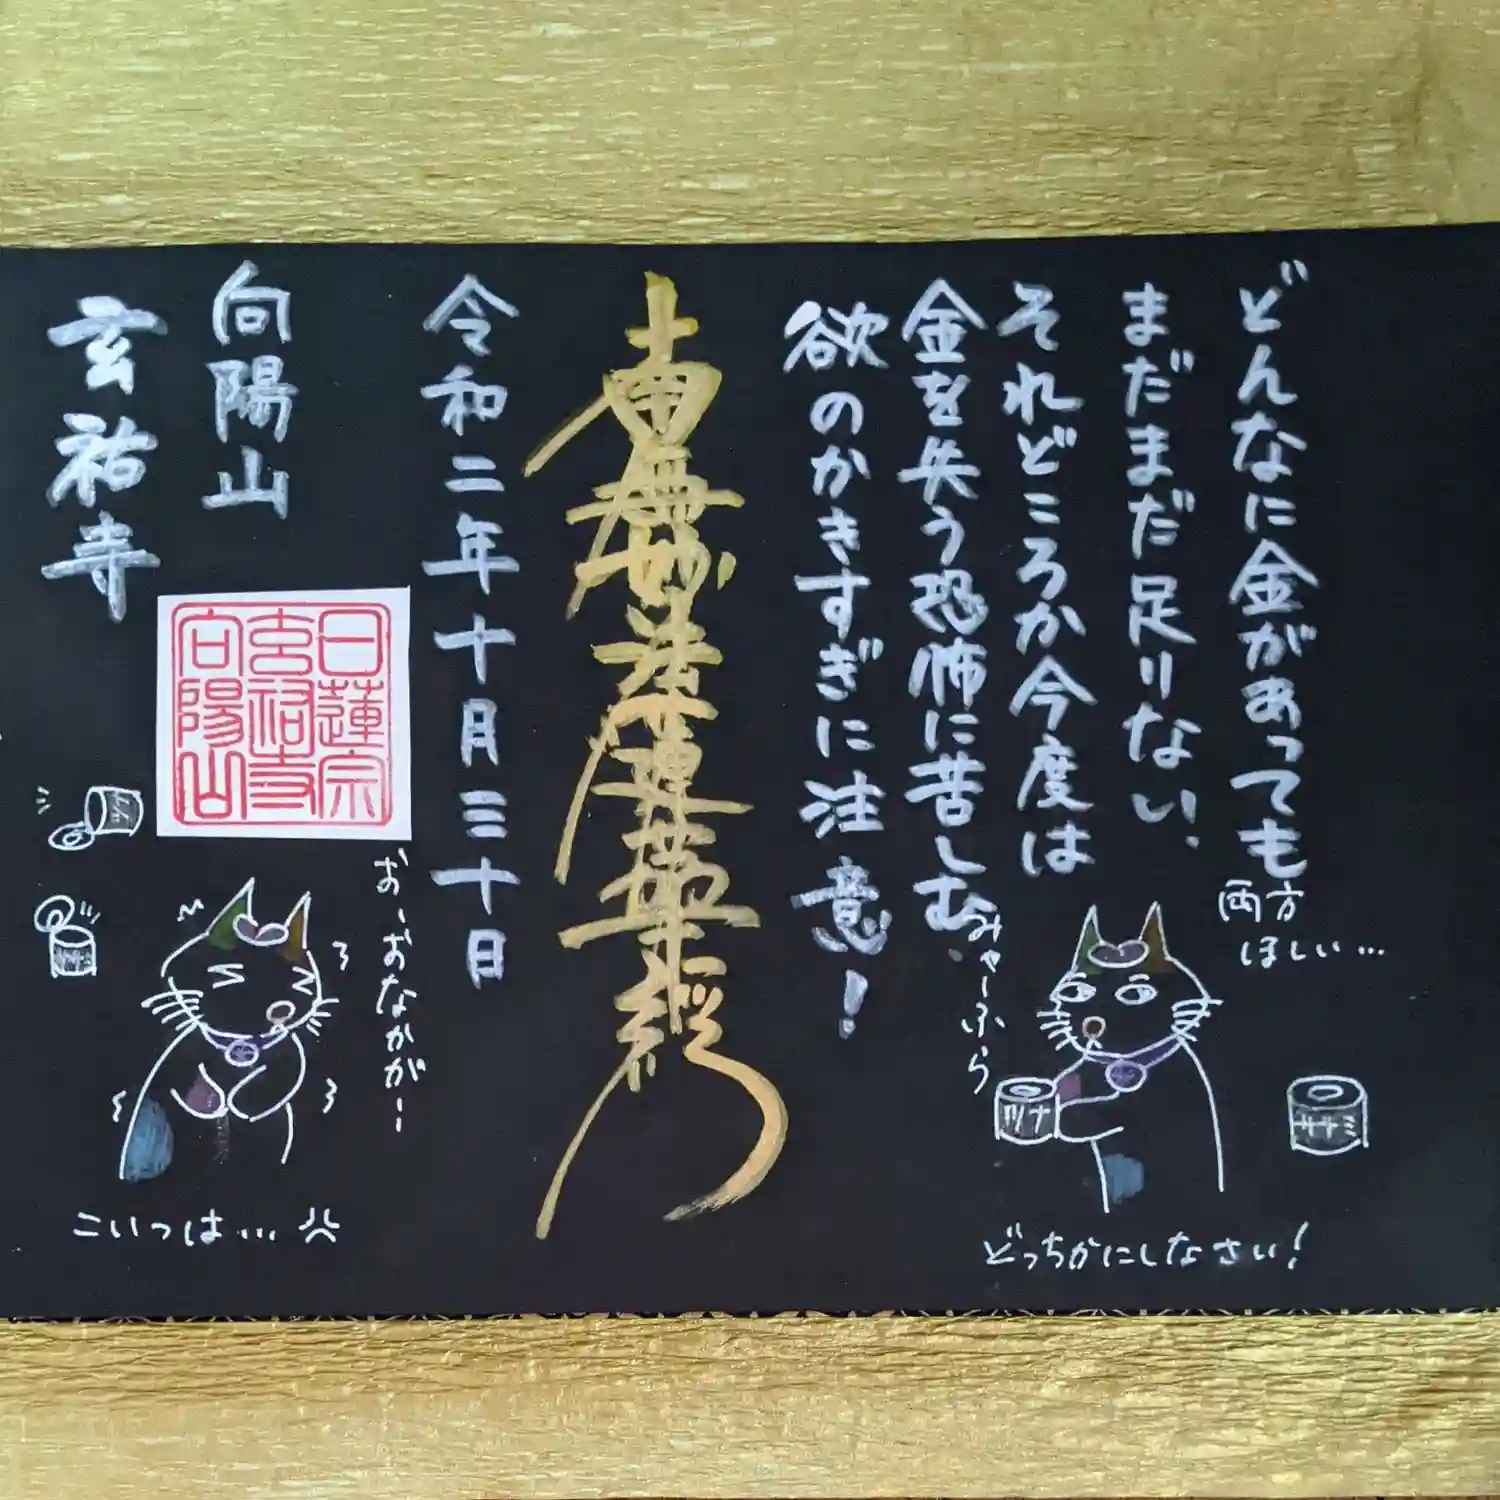 どんなに金があっても
まだまだ足りない、
それどころか今度は
金を失う恐怖に苦しむ、
欲のかきすぎに注意!
南無妙法蓮華経
令和二年十月三十日
向陽山
玄祐寺
日蓮宗
玄祐寺
向陽山
両方
ほしい…
みゃーふら
ツナ
ササミ
どっちかにしなさい!
お、おなかがー
こいつは…